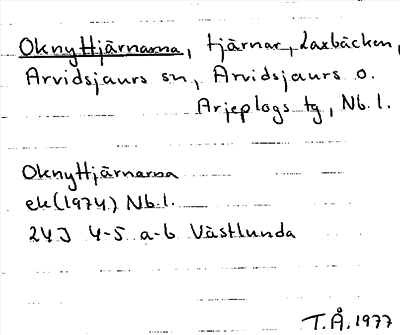 Oknyttjärnarna, tjärnar, Laxbäcken,
Arvidsjaurs sn, Arvidsjaurs o.
Arjeplogs tg, Nb.l.
Oknyttjärnarna
ek(1974) Nb.l.
24J 4-5 a-b Västlunda
T.Å. 1977